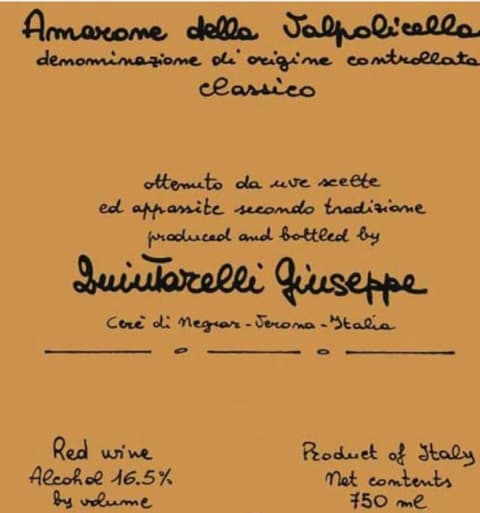 Amarone della Valpolicella
denominazione di origine controllata
classico
ottenuto da uve scelte
ed appassite secondo tradizione
produced and bottled by
Quintarelli Giuseppe
Cerè di Negrar - Verona - Italia
Red wine
Alcohol 16.5%
by volume
Product of Italy
Net contents
750 ml